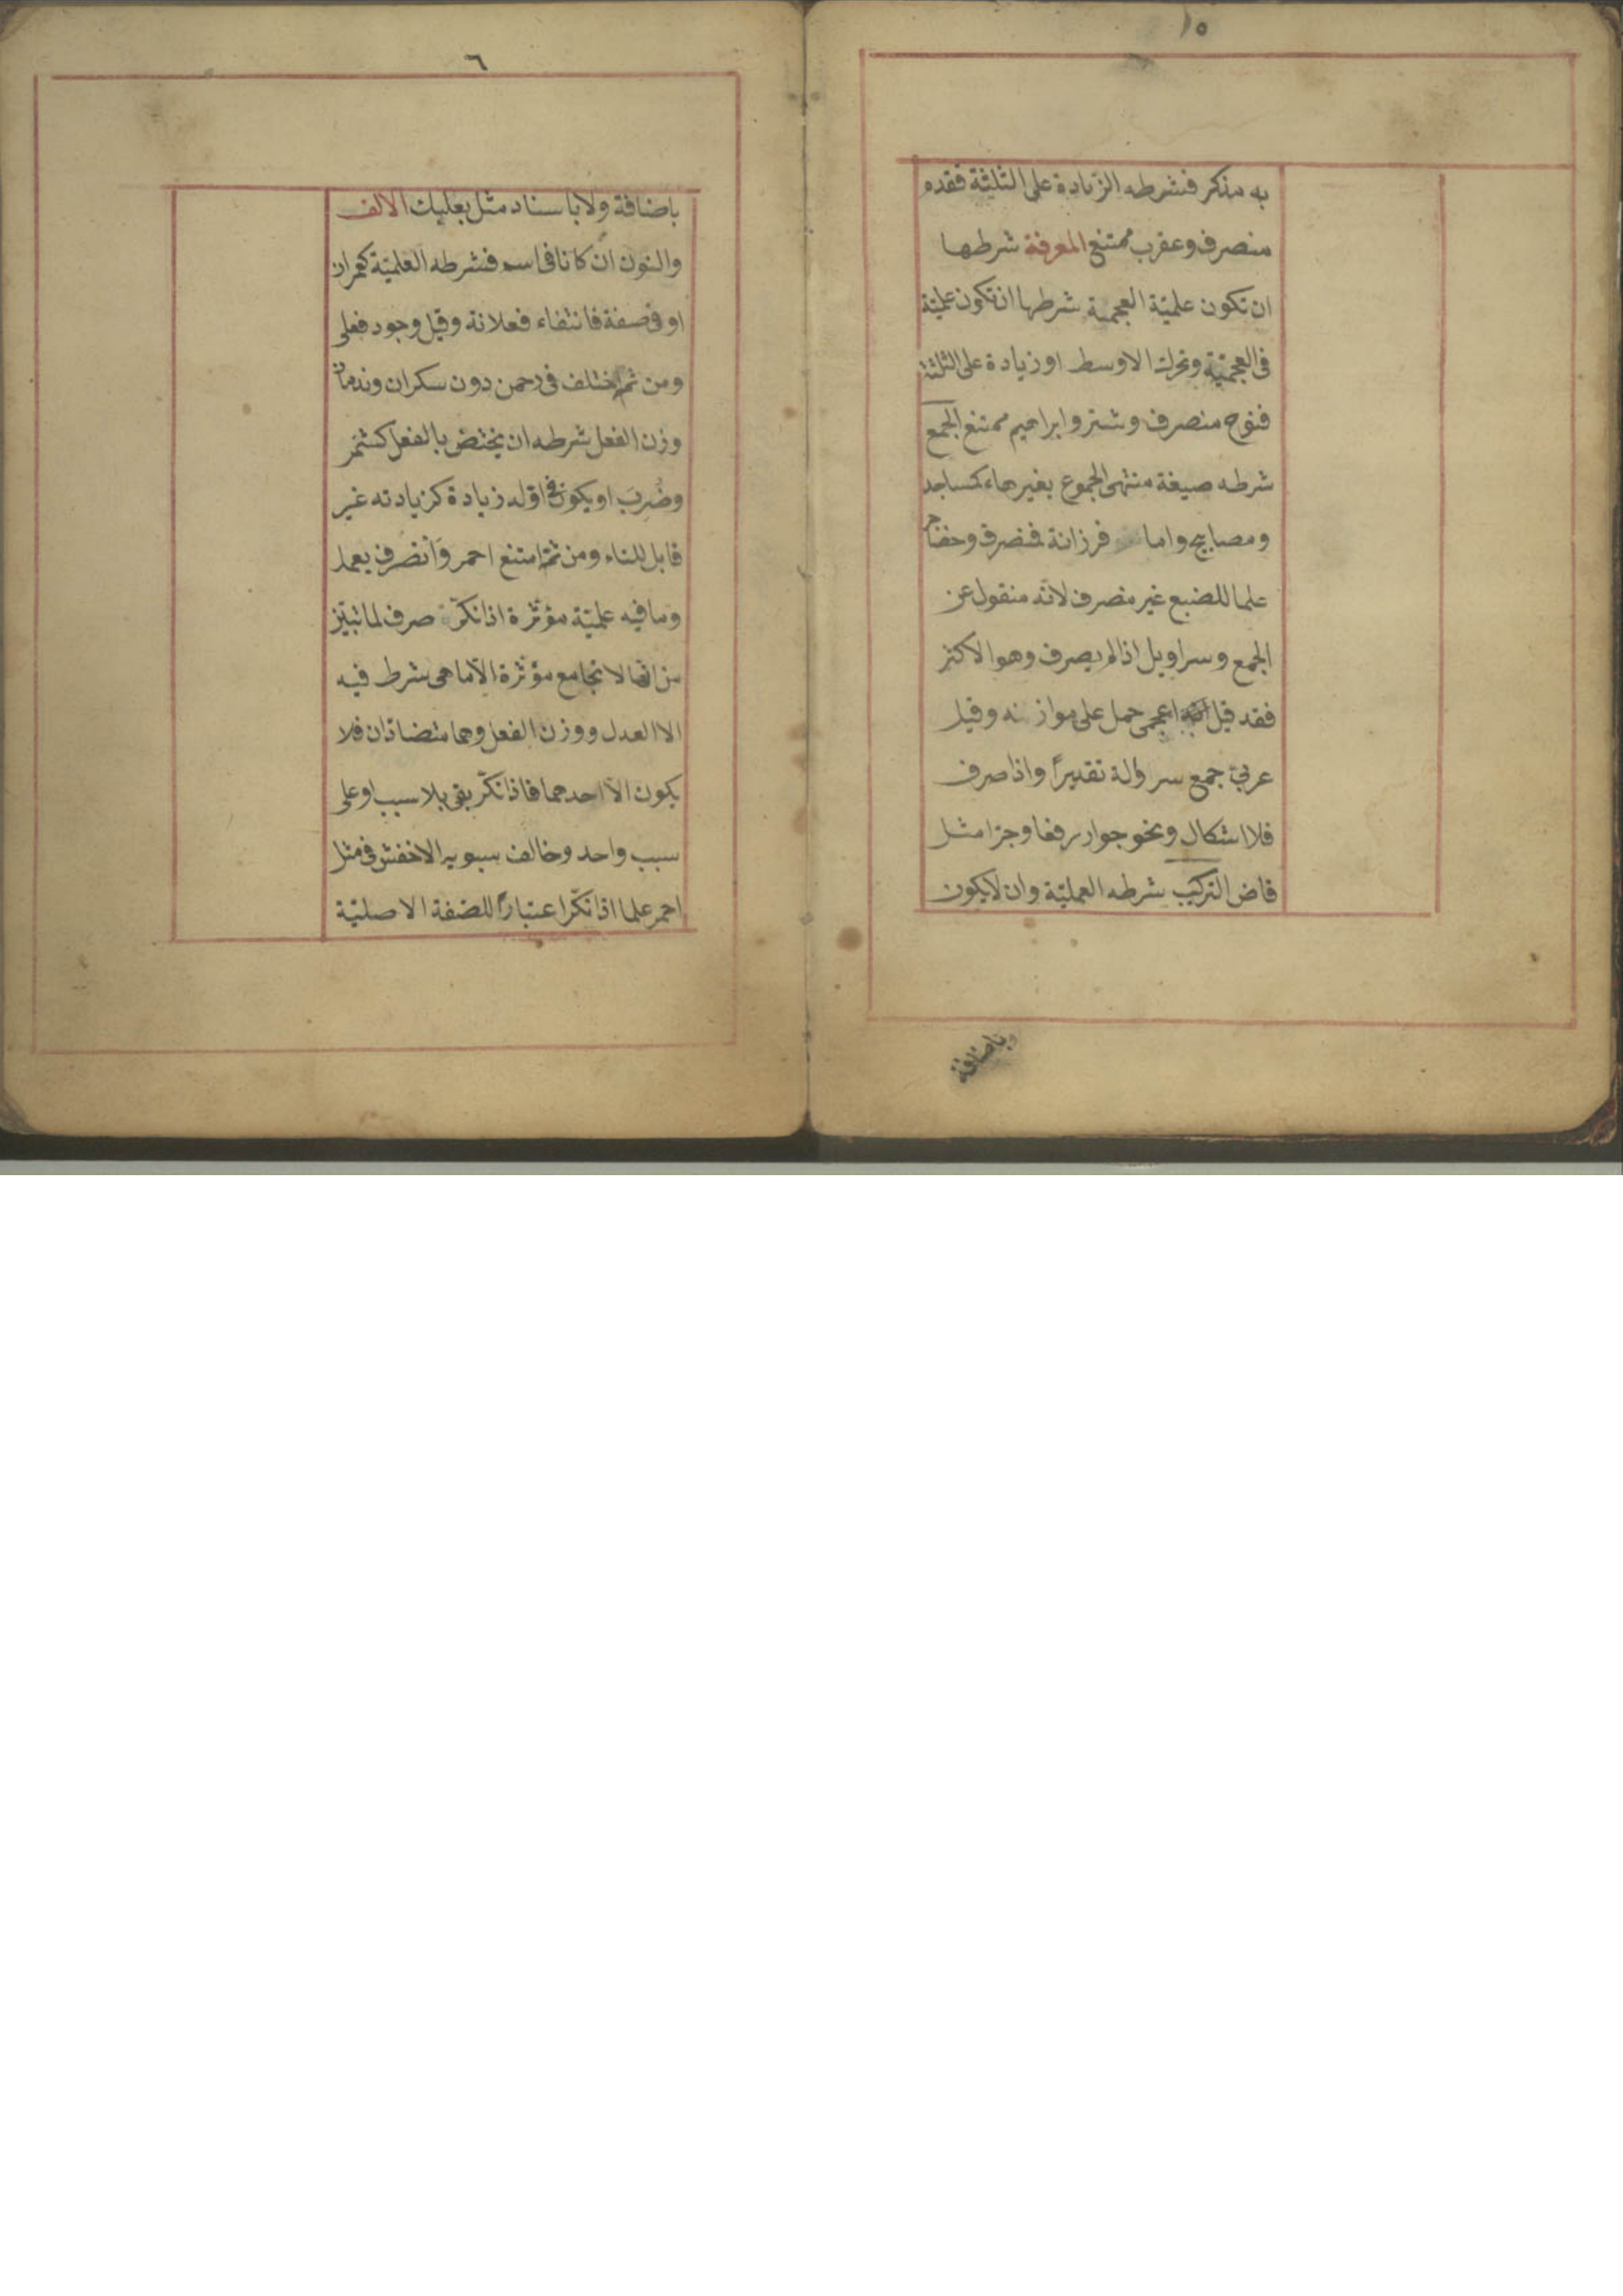 ١٥
به مذكر فشرطه الزيادة على الثلثة فقدم
منصرف وعقرب ممتنع المعرفة شرطها
ان تكون علميّة العجمة شرطها ان تكون علميّة
فى العجميّة وتحرك الاوسط او زيادة على الثلثة
فنوح منصرف وشتر وابراهيم ممتنع الجمع
شرطه صيغة منتهى الجموع بغير هاء كمساجد
ومصابيح واما فرزانة فمنصرف وحضاجر
علما للضبع غير منصرف لانّه منقول عن
الجمع وسراويل اذا لم يصرف وهو الاكثر
فقد قيل انه اعجمى حمل على موازنه وقيل
عربىّ جمع سروالة تقديرًا واذا صرف
فلا اشكال ونحو جوار رفعا وجرّا مثل
قاض التركيب شرطه العمليّة وان لا يكون
وباضافة
٦
باضافة ولا باسناد مثل بعلبك الالف
والنون ان كانا فى اسم فشرطه العلميّة كعمران
او فى صفة فانتفاء فعلانة وقيل وجود فعلى
ومن ثم اختلف فى رحمن دون سكران وندمان
وزن الفعل شرطه ان يختصّ بالفعل كشمّر
وضُرِبَ او يكون فى اوّله زيادة كزيادته غير
قابل للتاء ومن ثمّ امتنع احمر وَانصرف يعمل
وما فيه علميّة مؤثّرة اذا نكّر صرف لما تبيّن
من انّها لا تجامع مؤثّرة الّا ما هى شرط فيه
الا العدل ووزن الفعل وهما متضادّان فلا
يكون الّا احدهما فاذا نكّر بقى بلا سبب او على
سبب واحد وخالف سيبويه الاخفش فى مثل
احمر علما اذا نكّر اعتبارًا للصّفة الاصليّة